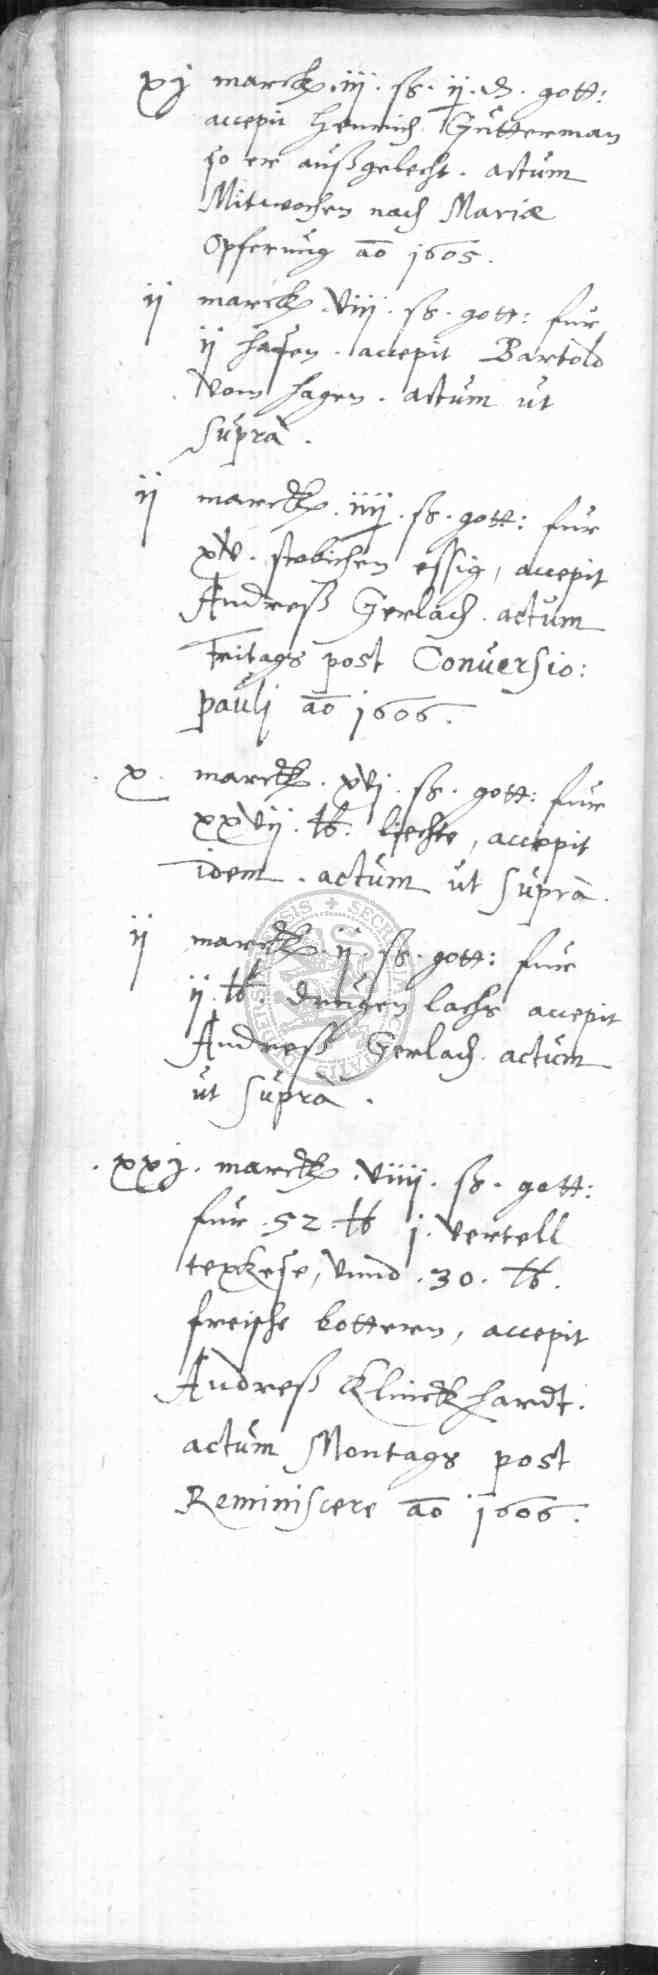 xj marck. iij. ß. ij. d. gott:
accepit Henrich Gütterman
so er außgelecht. actum
Mitwochen nach Mariæ
Opferung aō 1605.
ij marck. viij. ß. gott: fur
ij hasen. accepit Bartold
vom hagen. actum ut
supra.
ij marck. iiij. ß. gott: fur
xv. stobichen essig, accepit
Andreß Gerlach. actum
Fritags post Conversio:
pauli aō 1606.
. x. marck. xvj. ß. gott: fur
xxvij. ℔. liechte, accepit
idem. actum ut supra.
ij marck. ij. ß. gott: fur
ij. ℔. drugen lachs accepit
Andreß Gerlach. actum
ut supra.
. xxj. marck. viiij. ß. gott:
fur. 52. ℔ j. vertell
texkese, vnnd. 30. ℔.
freische bottern, accepit
Andreß Klinckhardt.
actum Montags post
Reminiscere aō 1606.